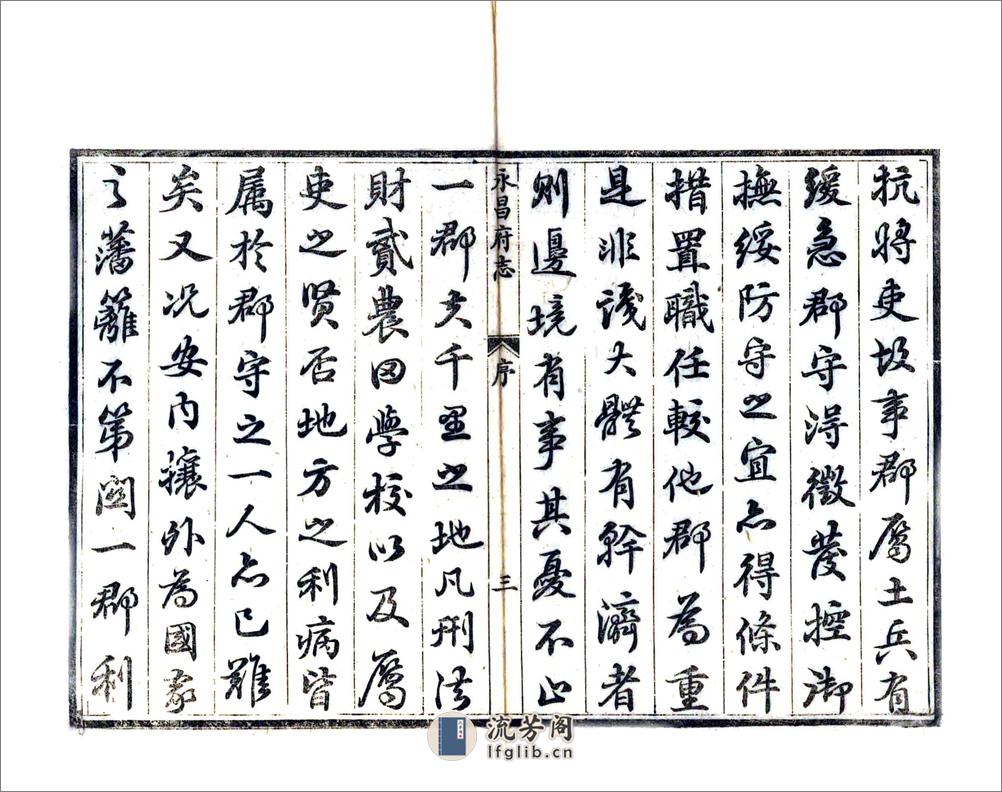 抗將吏故事郡屬土兵有
緩急郡守得徵發控御
撫綏防守之宜亦得條件
措置職任較他郡為重
是非識大體有幹濟者
則邊境有事其憂不止
永昌府志 序 三
一郡夫千里之地凡刑法
財賦農田學校以及屬
吏之賢否地方之利病皆
屬於郡守之一人亦已難
矣又况安內攘外為國家
之藩籬不第關一郡利
流芳阁
lfglib.cn